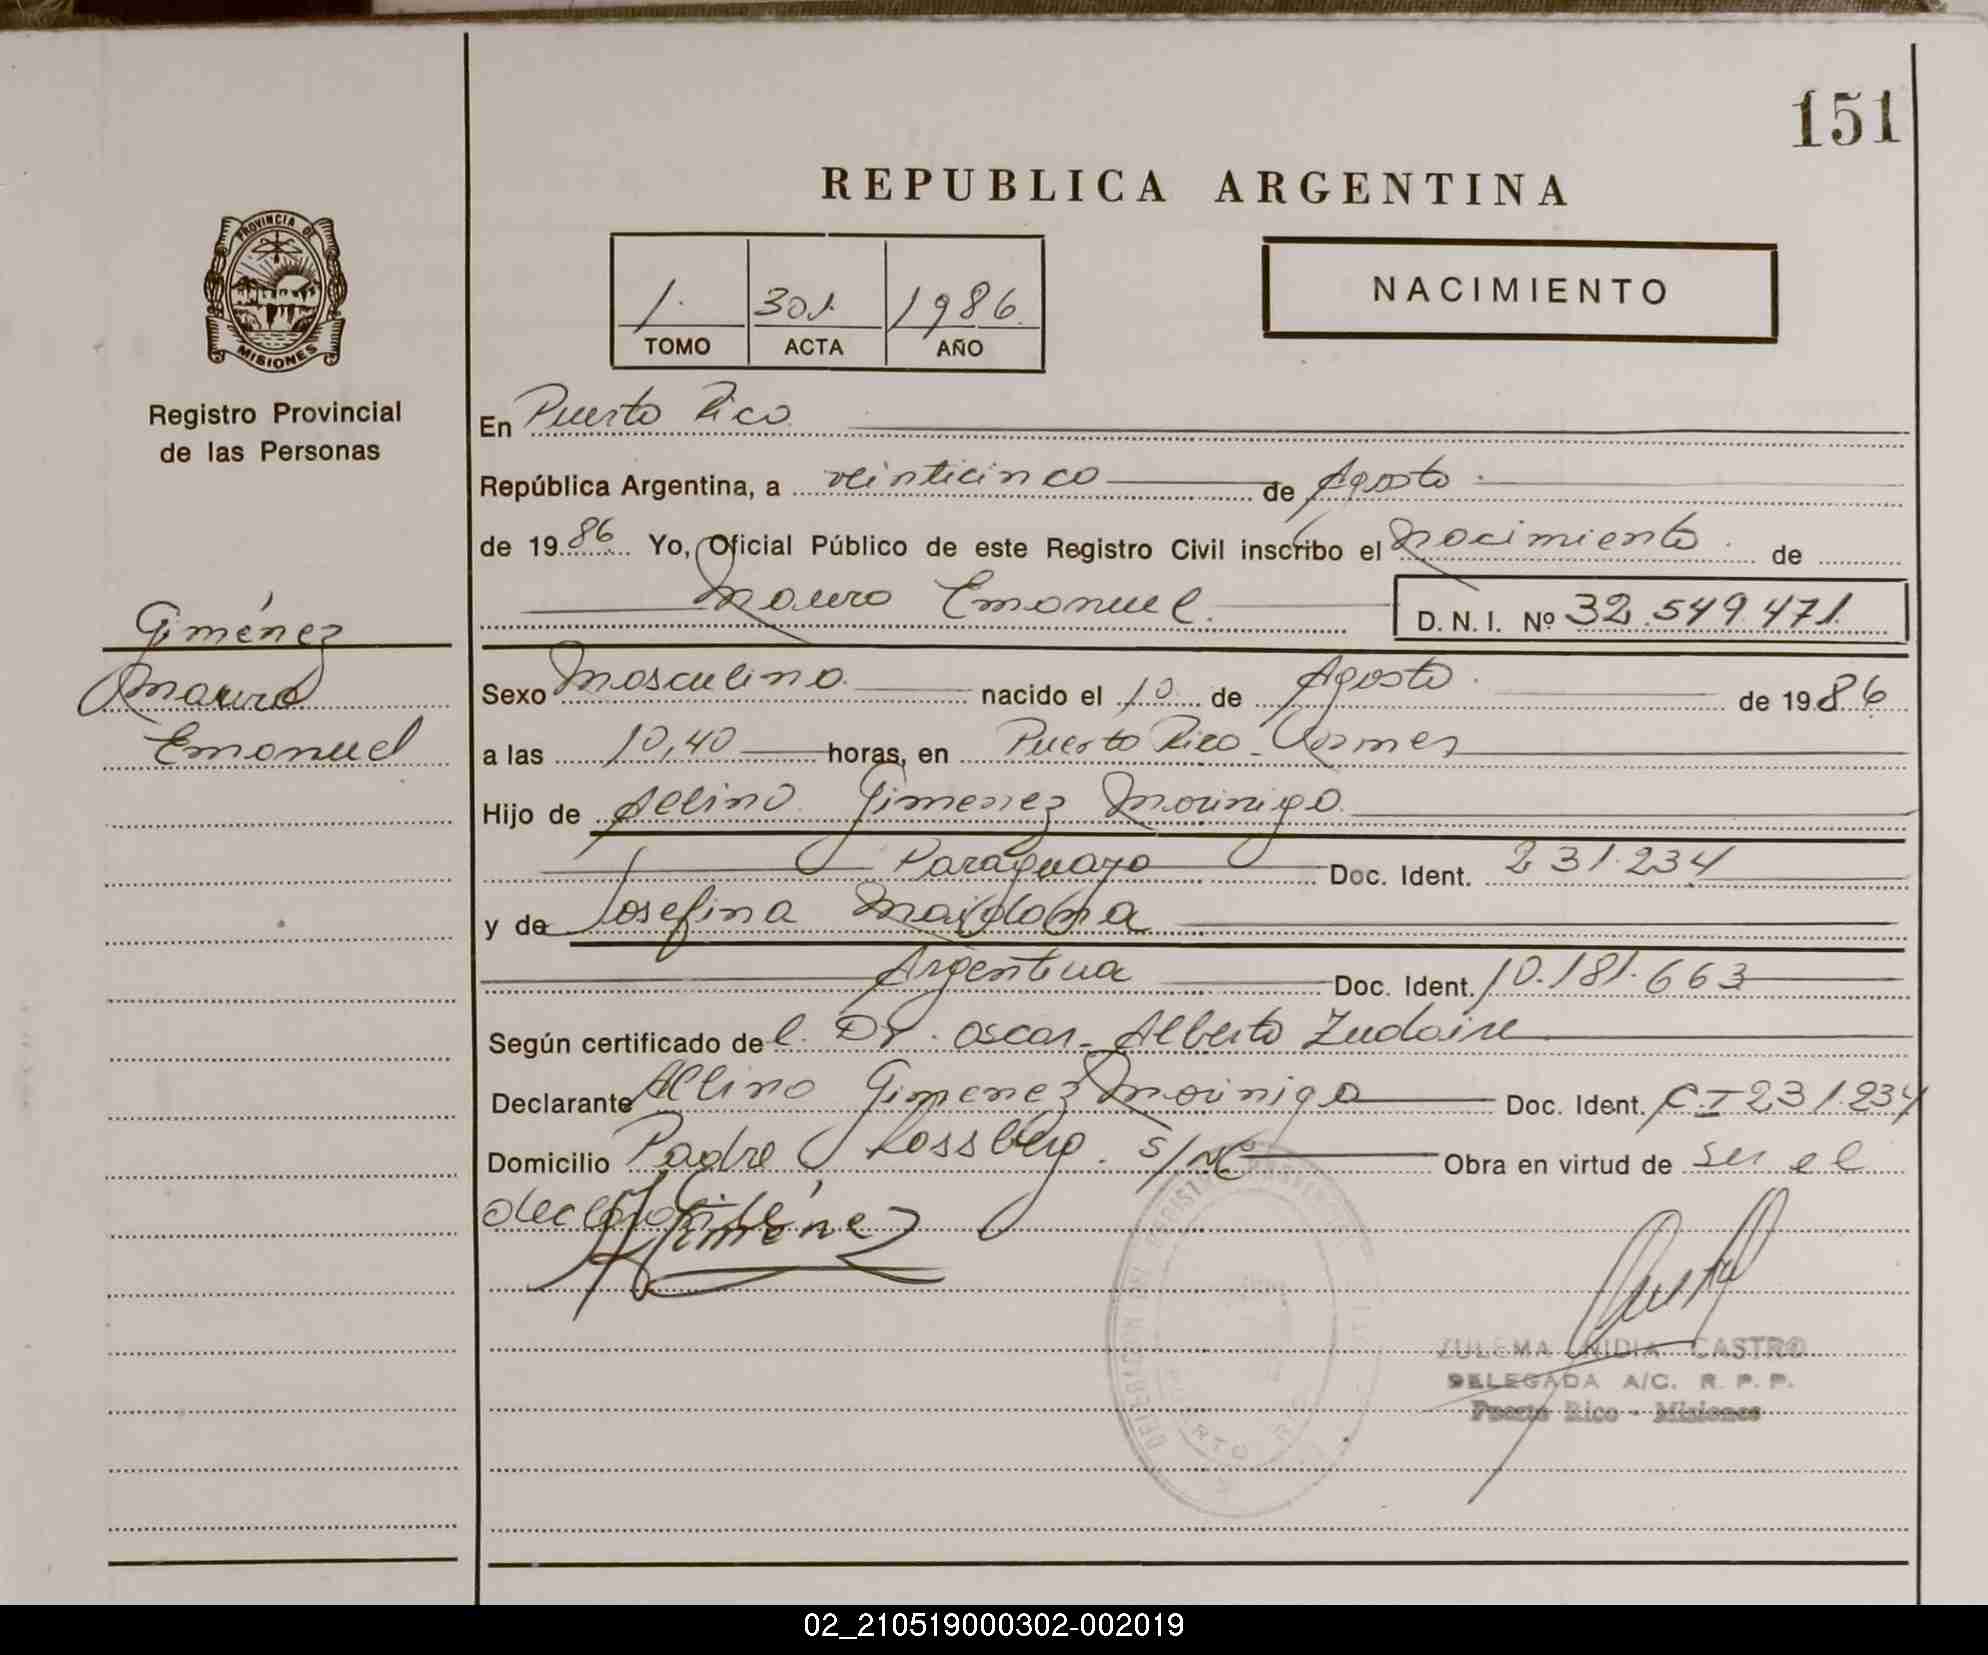 151
REPUBLICA ARGENTINA
PROVINCIA DE
MISIONES
Registro Provincial
de las Personas
1. 301. 1986.
TOMO ACTA AÑO
NACIMIENTO
En Puerto Rico
República Argentina, a veinticinco de Agosto
de 1986 Yo, Oficial Público de este Registro Civil inscribo el Nacimiento de
Mauro Emanuel. D.N.I. Nº 32.549.471.
Giménez
Mauro
Emanuel
Sexo Masculino nacido el 10 de Agosto de 1986
a las 10,40 horas, en Puerto Rico
Hijo de Albino Gimenez Morinigo
Paraguayo Doc. Ident. 231.234
y de Josefina Maidana
Argentina Doc. Ident. 10.181.663
Según certificado del Dr. Oscar Alberto Zudaire
Declarante Albino Gimenez Morinigo Doc. Ident. C.I 231.234
Domicilio Padre Rossberg. s/Nº Obra en virtud de ser el
declarante
AGiménez
ZULEMA NIDIA CASTRO
DELEGADA A/C. R. P. P.
Puerto Rico - Misiones
02_210519000302-002019